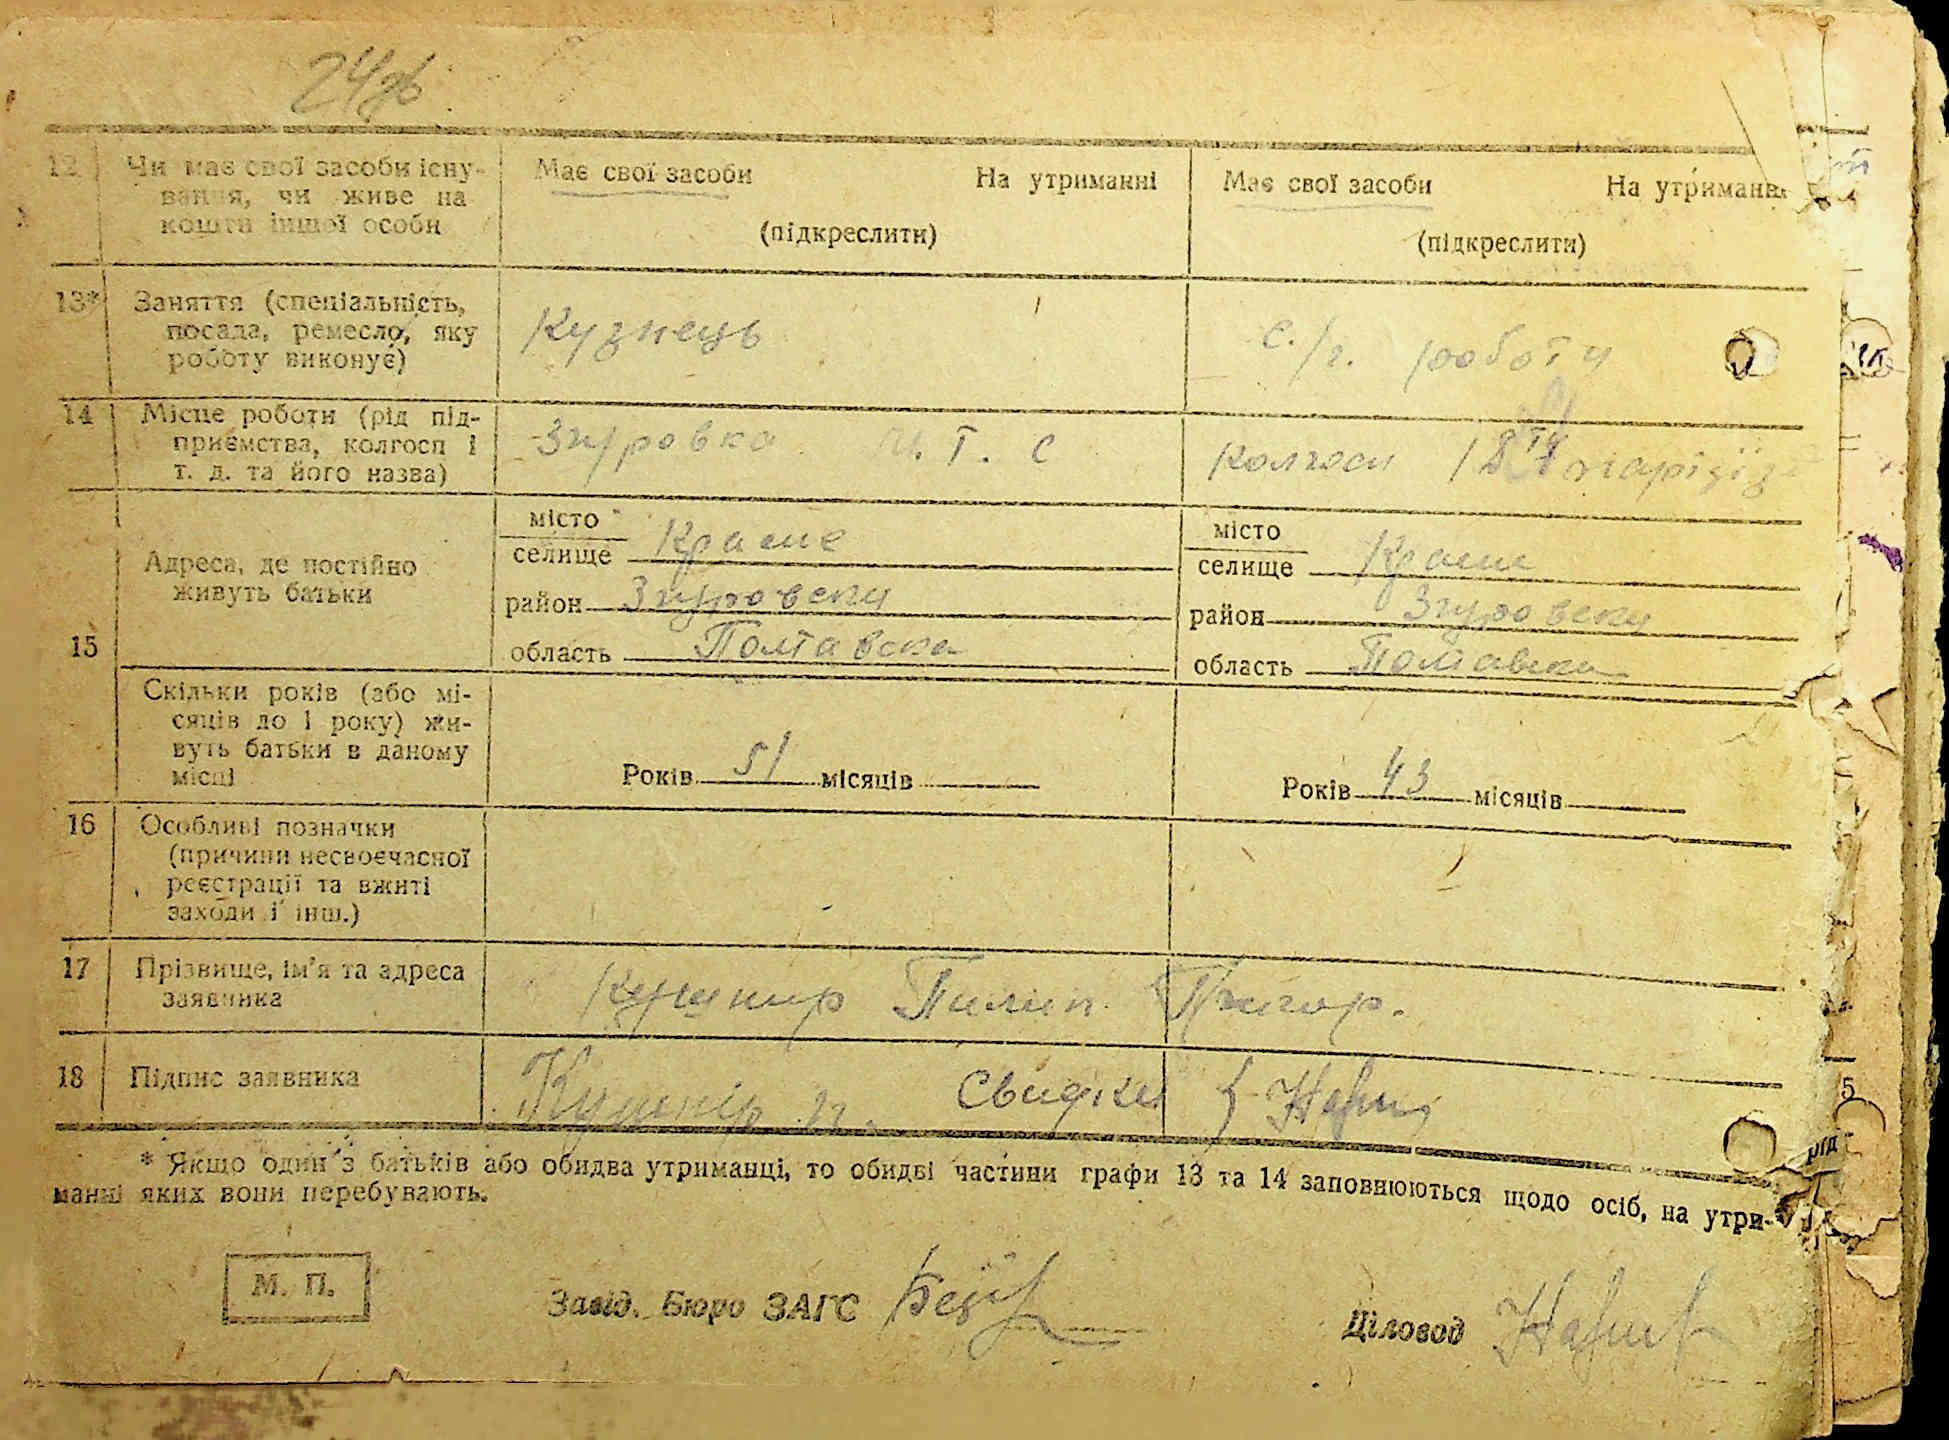 24
12 Чи має свої засоби існу- Має свої засоби На утриманні Має свої засоби На утриманні
вання, чи живе на
кошти іншої особи (підкреслити) (підкреслити)
13* Заняття (спеціальність,
посада, ремесло, яку Кузнець с./г. роботи
роботу виконує)
14 Місце роботи (рід під-
приємства, колгосп і Згуровка М. Т. С Колгосп 18
т. д. та його назва)
місто місто
селище Красне селище Красне
Адреса, де постійно
живуть батьки район Згуровски район Згуровски
15 область Полтавска область Полтавска
Скільки років (або мі-
сяців до 1 року) жи-
вуть батьки в даному
місці Років 51 місяців Років 43 місяців
16 Особливі позначки
(причини несвоєчасної
реєстрації та вжиті
заходи і інш.)
17 Прізвище, ім'я та адреса Кушнир Пилип Григор.
заявника
18 Підпис заявника Кушнір п. Свидки
* Якщо один з батьків або обидва утриманці, то обидві частини графи 13 та 14 заповнюються щодо осіб, на утри-
манні яких вони перебувають.
М. П. Завід. Бюро ЗАГС Діловод